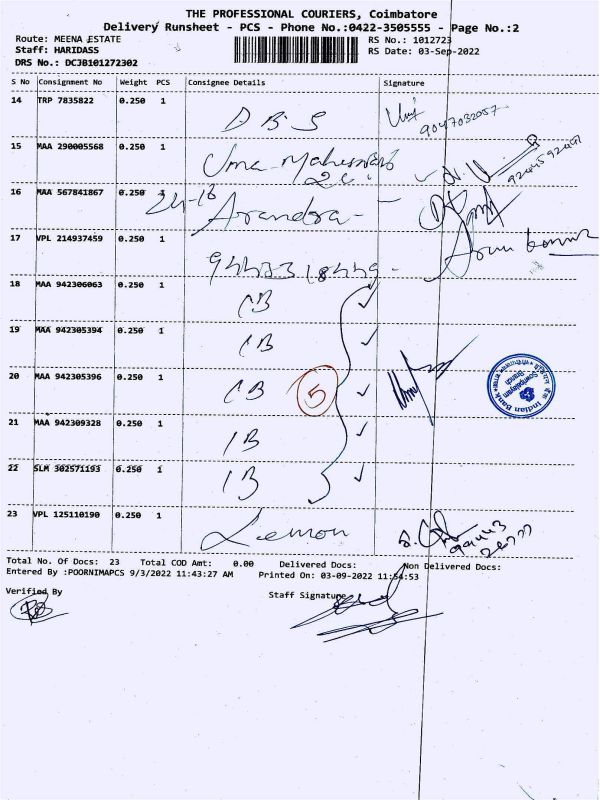 THE PROFESSIONAL COURIERS, Coimbatore
Delivery Runsheet - PCS - Phone No.:0422-3505555 - Page No.:2
Route: MEENA ESTATE
RS No.: 1012723
Staff: HARIDASS
RS Date: 03-Sep-2022
DRS No.: DCJB101272302
S No Consignment No Weight PCS Consignee Details Signature
14 TRP 7835822 0.250 1
DBS
9047032057
15 MAA 290005568 0.250 1
Uma Maheswari
16 MAA 567841867 0.250 1
24-1B
17 VPL 214937459 0.250 1
18 MAA 942306063 0.250 1
IB
19 MAA 942305394 0.250 1
IB
20 MAA 942305396 0.250 1
IB 5
Indian Bank
Branch
21 MAA 942309328 0.250 1
IB
22 SLM 302571193 0.250 1
IB
23 VPL 125110190 0.250 1
Lemon
Total No. Of Docs: 23 Total COD Amt: 0.00 Delivered Docs: Non Delivered Docs:
Entered By :POORNIMAPCS 9/3/2022 11:43:27 AM Printed On: 03-09-2022 11:54:53
Verified By
Staff Signature